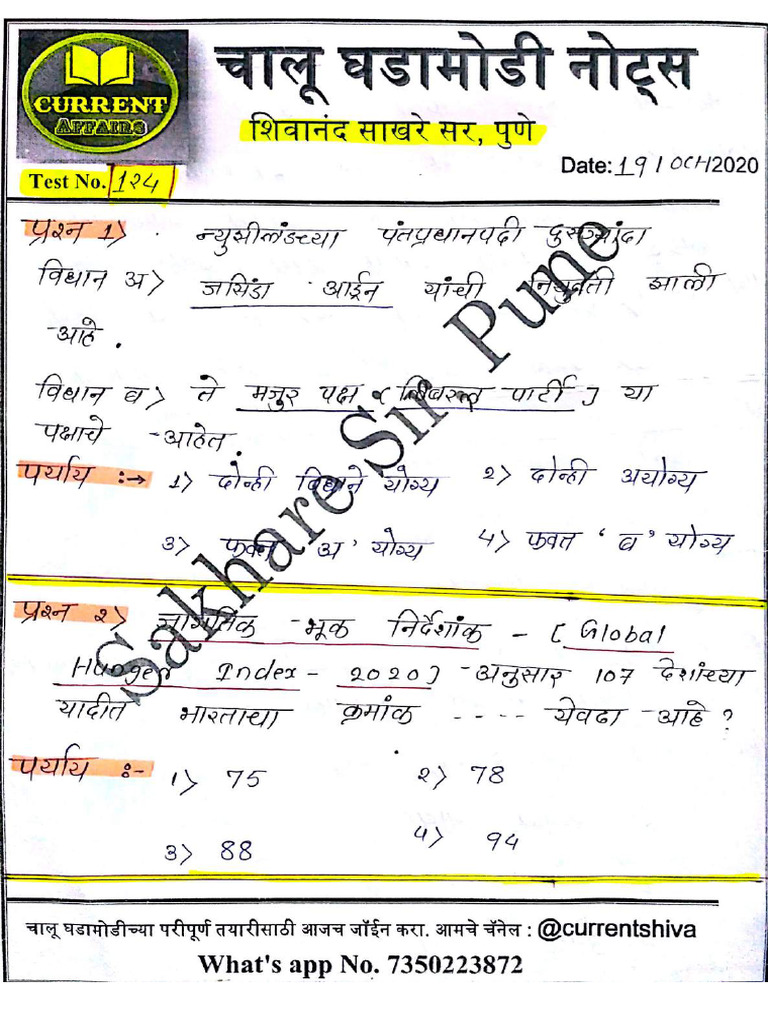 CURRENT
AFFAIRS
चालू घडामोडी नोट्स
शिवानंद साखरे सर, पुणे
Date: 19/Oct/2020
Test No. 124
प्रश्न 1) . न्युसीलंडच्या पंतप्रधानपदी दुसऱ्यांदा
विधान अ> जसिंडा आर्डन यांची नियुक्ती झाली
आहे .
विधान ब> ते मजुर पक्ष [लिबरल पार्टी] या
पक्षाचे आहेत.
पर्याय :→ 1) दोन्ही विधाने योग्य 2) दोन्ही अयोग्य
3) फक्त 'अ' योग्य 4) फक्त 'ब' योग्य
प्रश्न 2) जागतिक भूक निर्देशांक - [Global
Hunger Index - 2020] अनुसार 107 देशांच्या
यादीत भारताचा क्रमांक ---- येवढा आहे?
पर्याय :- 1) 75 2) 78
3) 88 4) 94
Sakhare Sir Pune
चालू घडामोडीच्या परीपूर्ण तयारीसाठी आजच जॉईन करा. आमचे चॅनेल : @currentshiva
What's app No. 7350223872